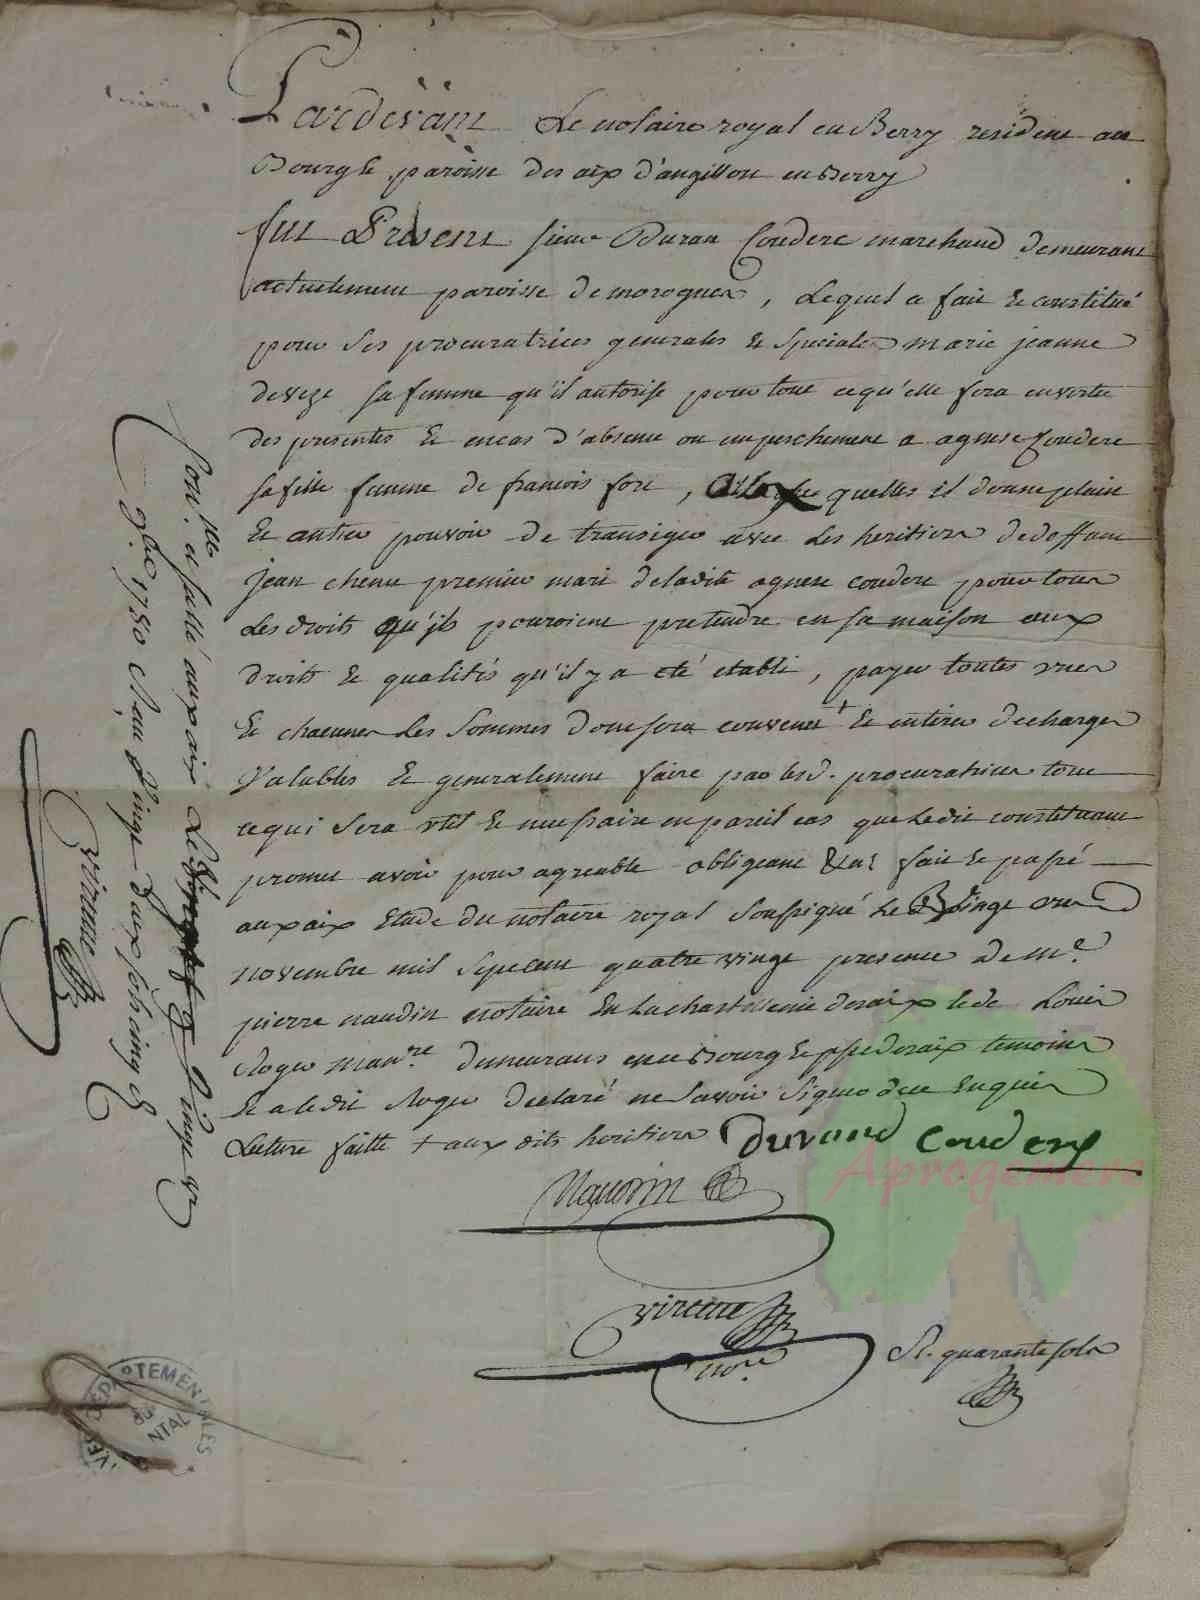 Pardevant Le notaire royal en Berry resident au
Bourg & paroisse des aix d'angillon en Berry
fut Present sieur Duran Couderc marchand demeurant
actuelement paroisse de morogues, Lequel a fait & constitué
pour ses procuratrices generales & speciales marie jeanne
deveze sa femme qu'il autorise pour tout ce qu'elle fera en vertu
des presentes & en cas d'absence ou empeschement a agnese Couderc
sa fille femme de francois fort, quelles il donne plain
& entier pouvoir de transiger avec Les heritiers de deffunt
jean chenu premier mari de ladite agnese couderc pour tous
Les droits qu'ils pouroient pretendre en sa maison aux
droits & qualités qu'il y a eté etabli, payer toutes unes
& chacunes Les sommes dont sera convenu + & entiere decharges
Valables & generalement faire par lesd. procuratrices tout
ce qui sera util & necessaire en pareil cas que Ledit constituant
promet avoir pour agreable obligeant &a fait & passé
aux aix Etude du notaire royal soussigné Le vingt un
novembre mil sept cent quatre vingt presence de me.
pierre naudin notaire En La chastellenie desaix & de Louis
Roger manre. demeurans en ce Bourg & psse desaix temoins
& a Ledit Roger declaré ne savoir signer de ce Enquis
Lecture faitte + aux dits heritiers Durand Couderc
Naudin
virenne
nore.
R. quarante sols
Con. lle & scellé aux aix Le vingt un
9bre 1780 Reçu vingt deux sols cinq d
virenne
ARCHIVES DEPARTEMENTALES
DU
CANTAL
Aprogemere